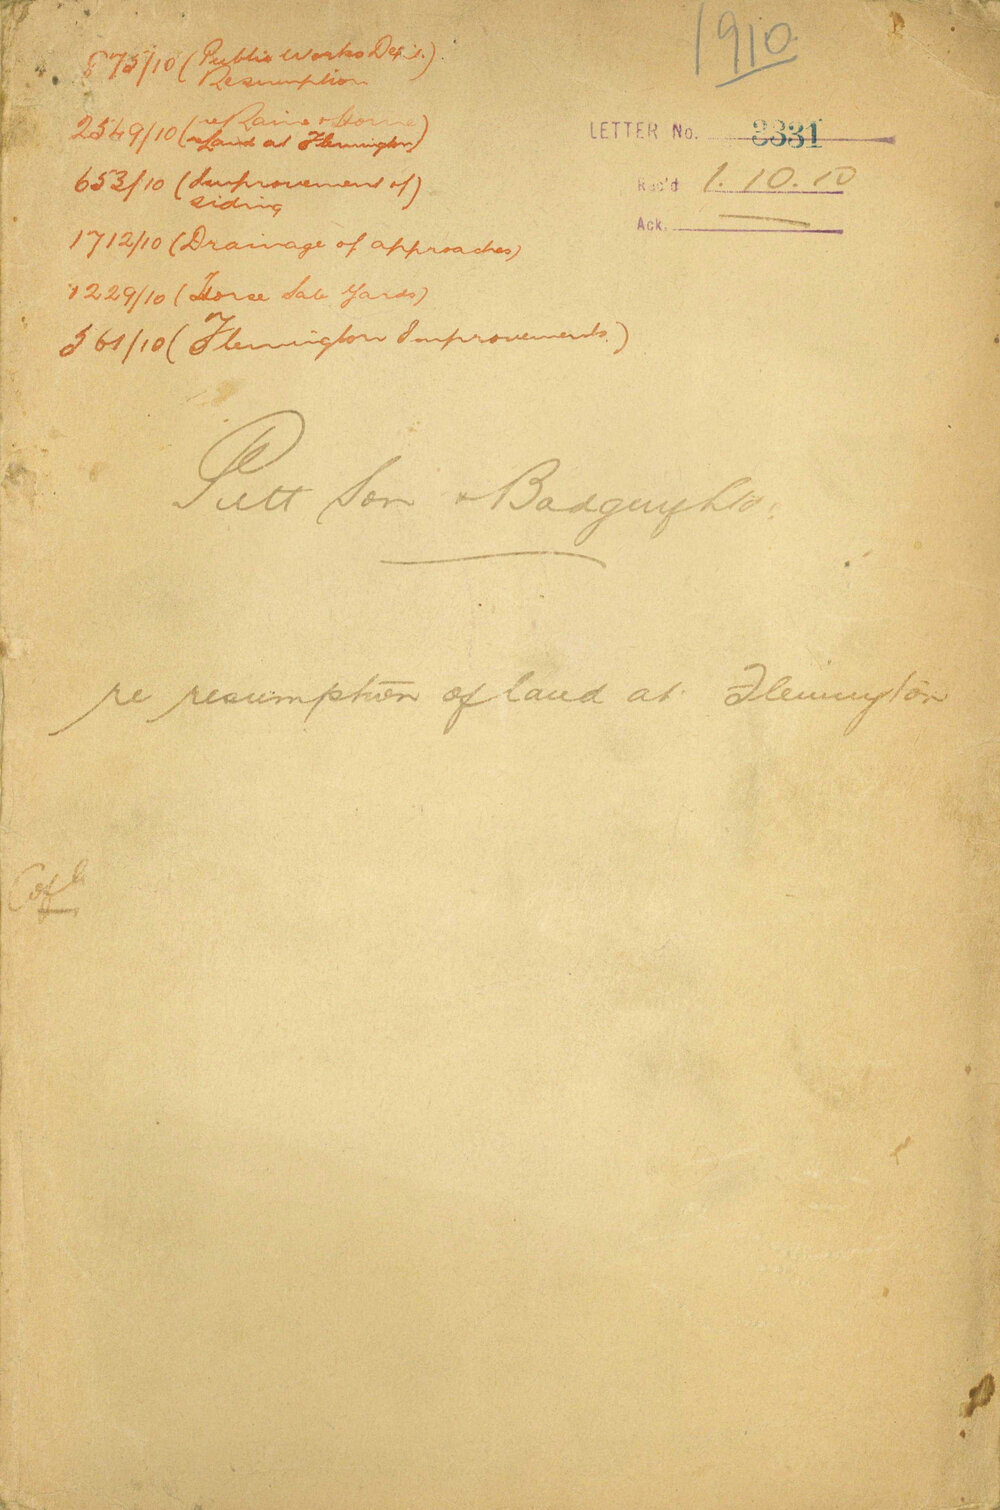 1910
875/10 (Public Works Dept.)
Resumption
2549/10 (re Raine & Horne)
re Land at Flemington)
653/10 (Improvement of)
siding
1712/10 (Drainage of approaches)
1229/10 (Horse Sale Yards)
561/10 (Flemington Improvements.)
LETTER No. 3331
Rec'd 1.10.10
Ack.
Pitt Son & Badgery Ltd.
re resumption of land at Flemington